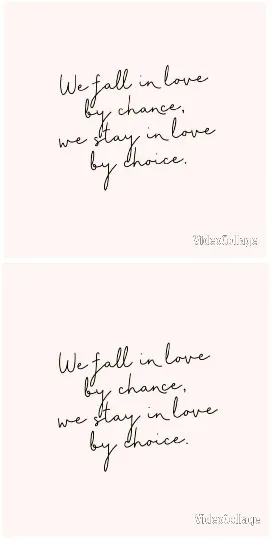 We fall in love
by chance,
we stay in love
by choice.
VideoCollage
We fall in love
by chance,
we stay in love
by choice.
VideoCollage